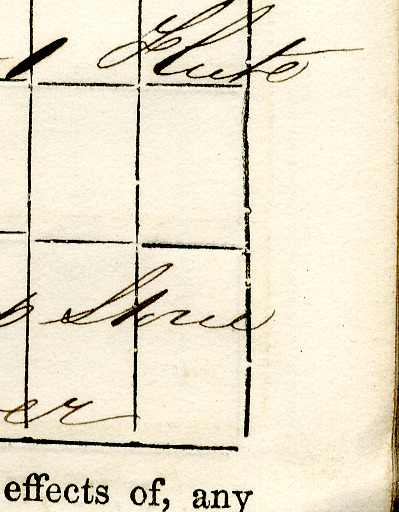 1 Flute
Store
er
effects of, any